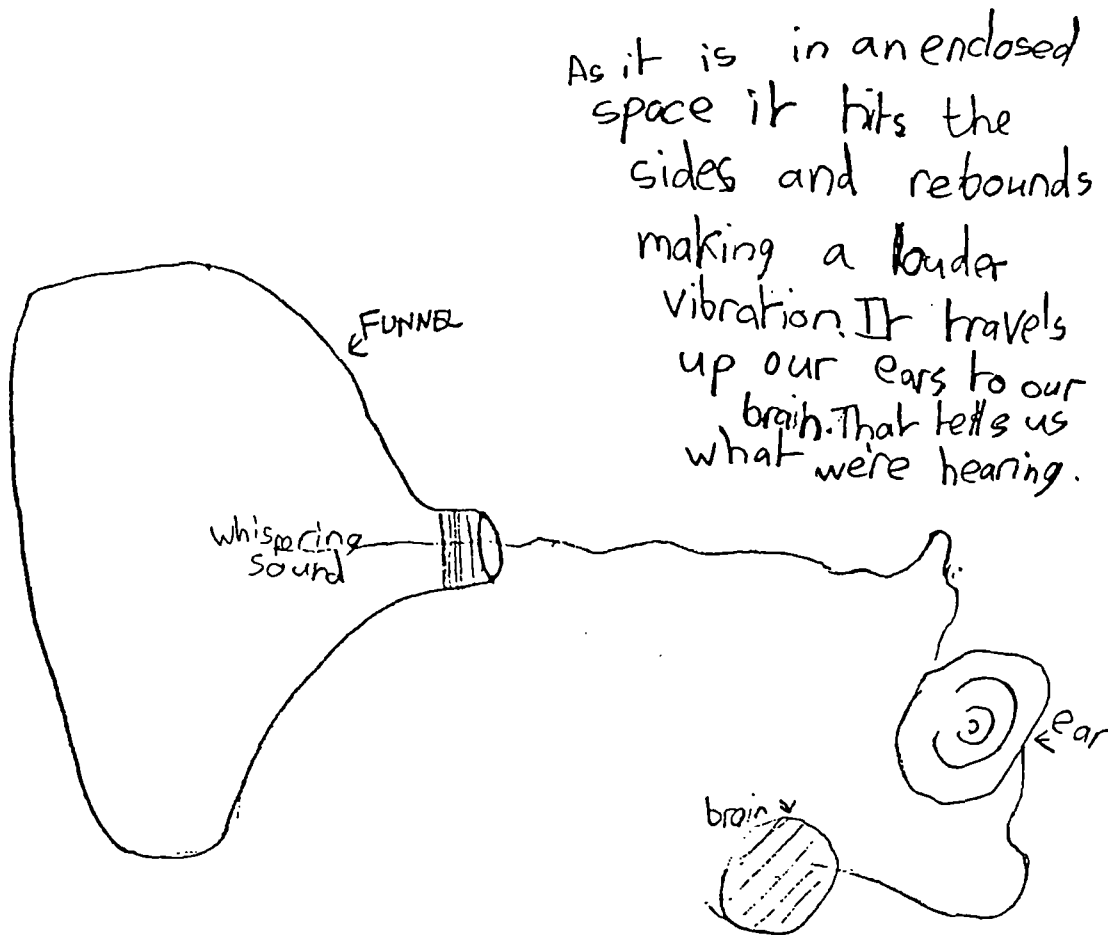 As it is in an enclosed
space it hits the
sides and rebounds
making a louder
vibration. It travels
up our ears to our
brain. That tells us
what we're hearing.
FUNNEL
whispering
sound
ear
brain